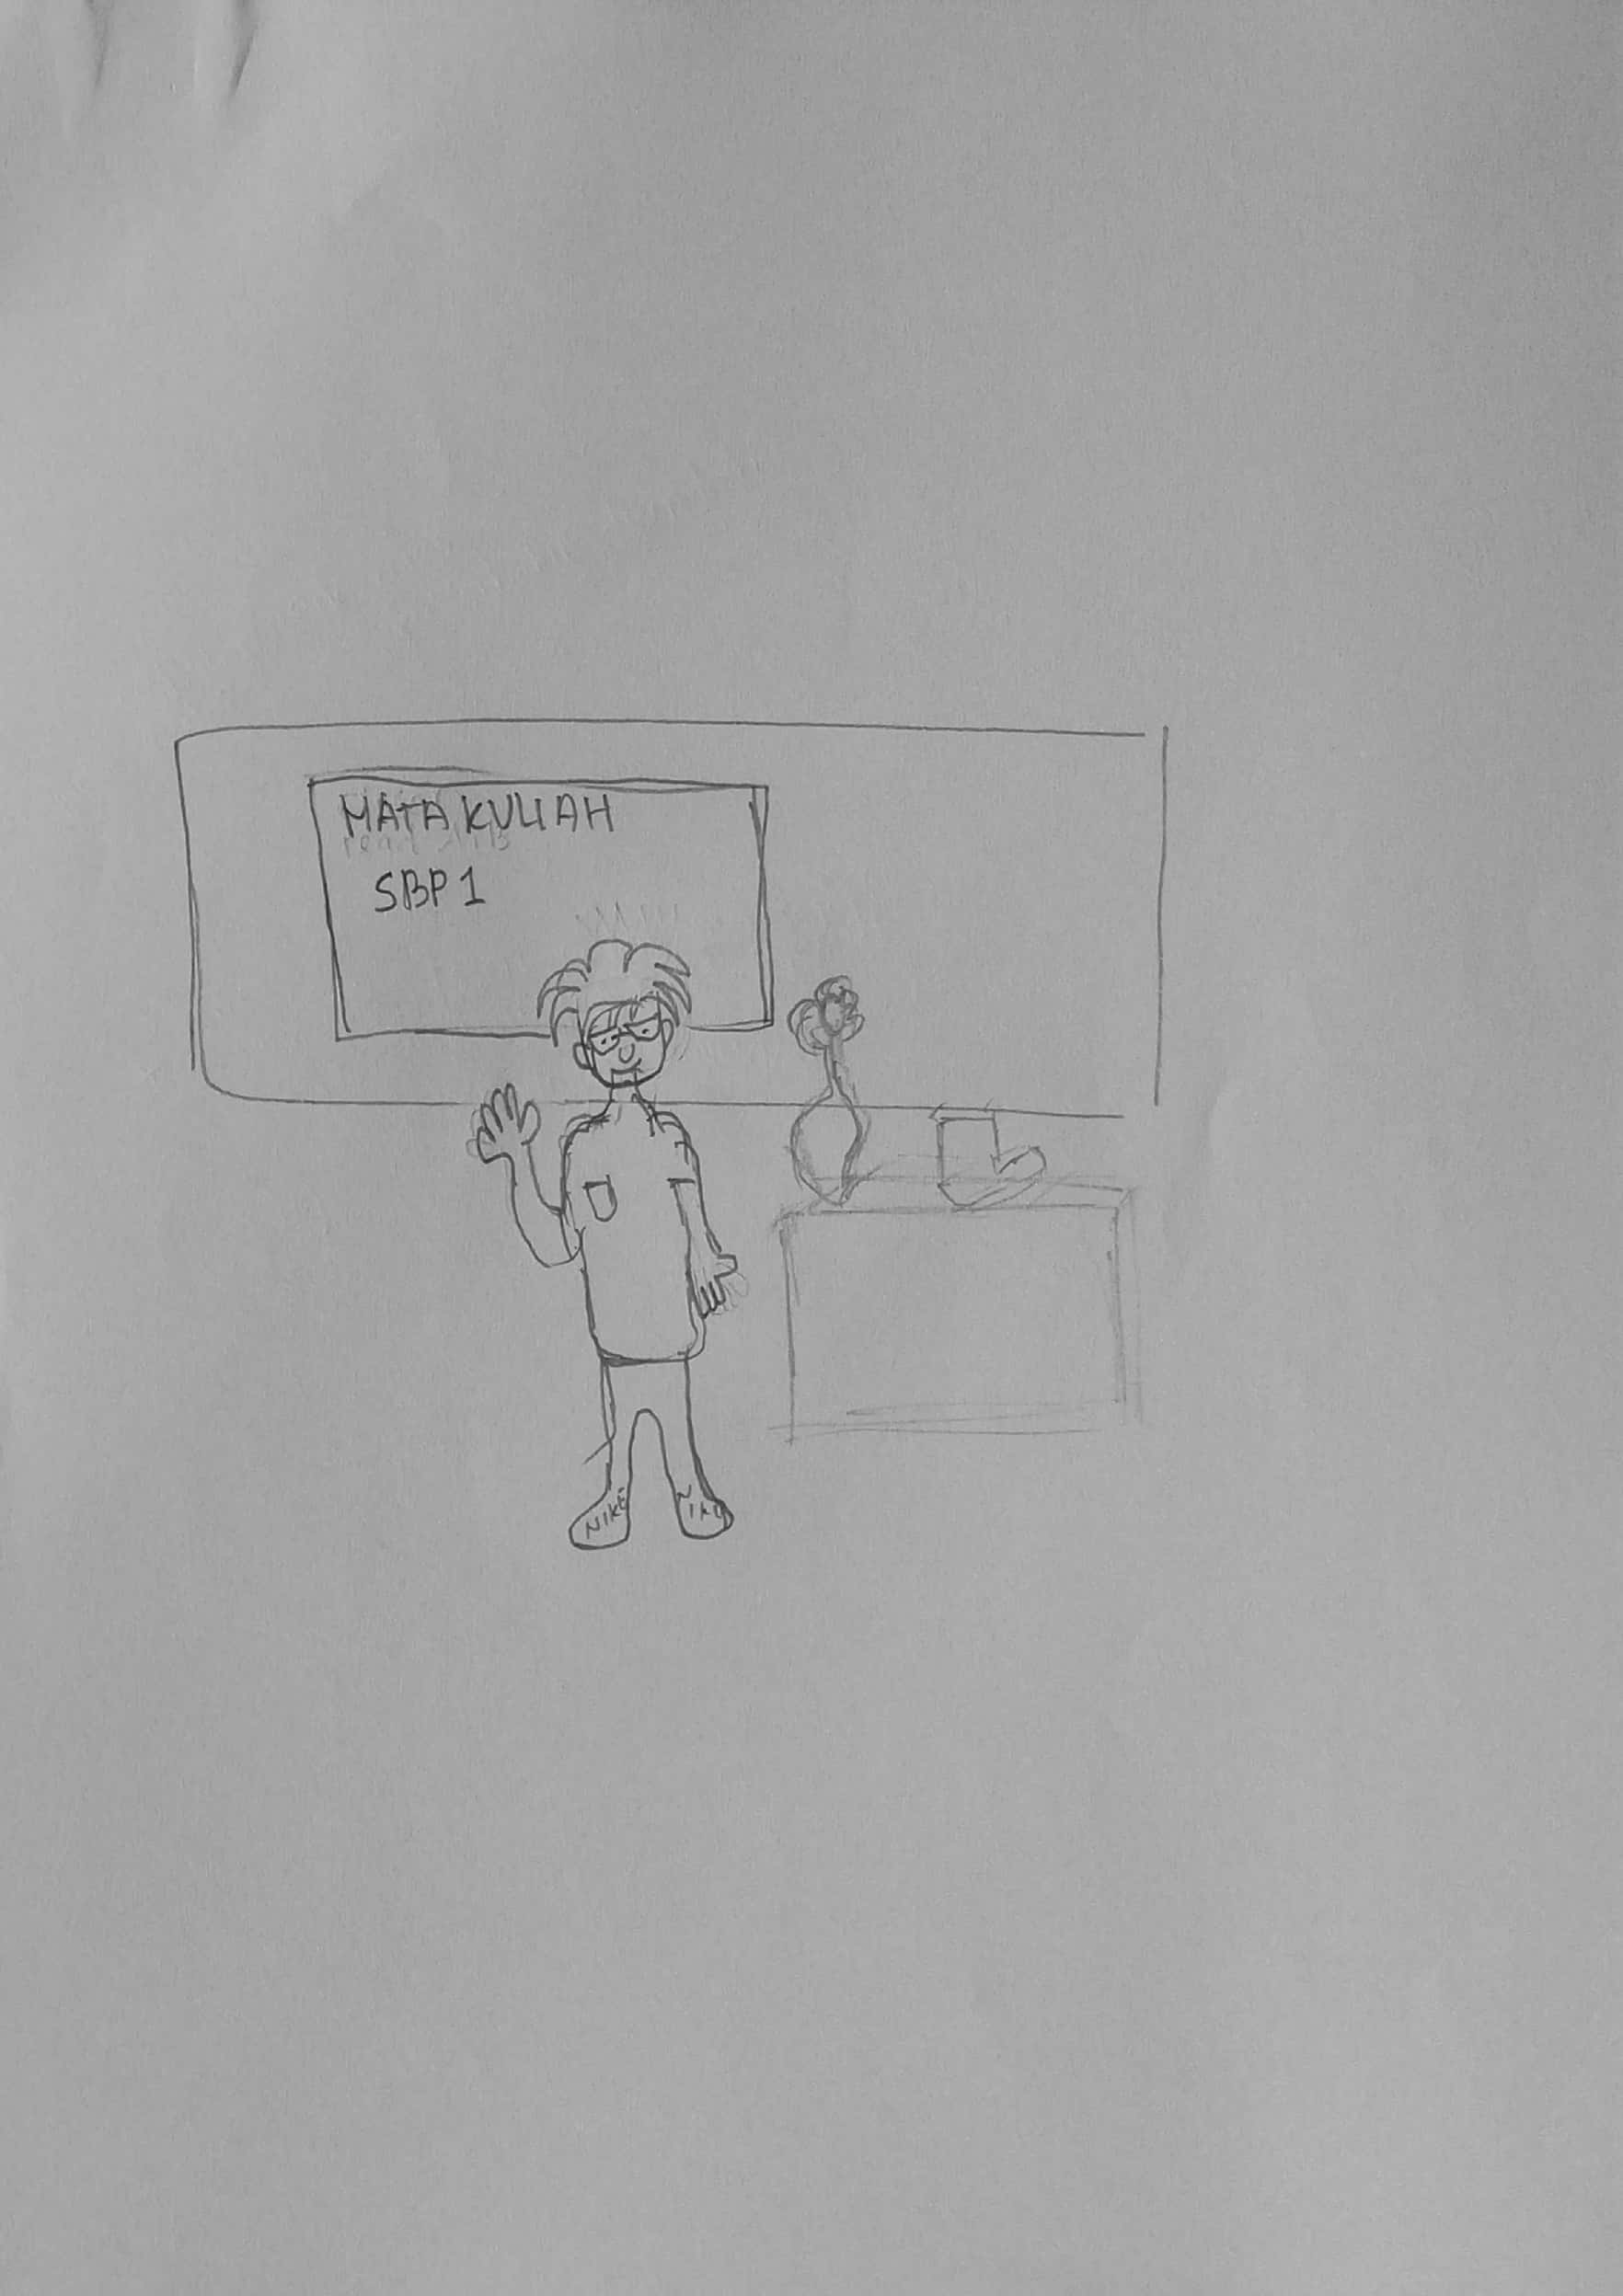 MATA KULIAH
SBP 1
NIKE